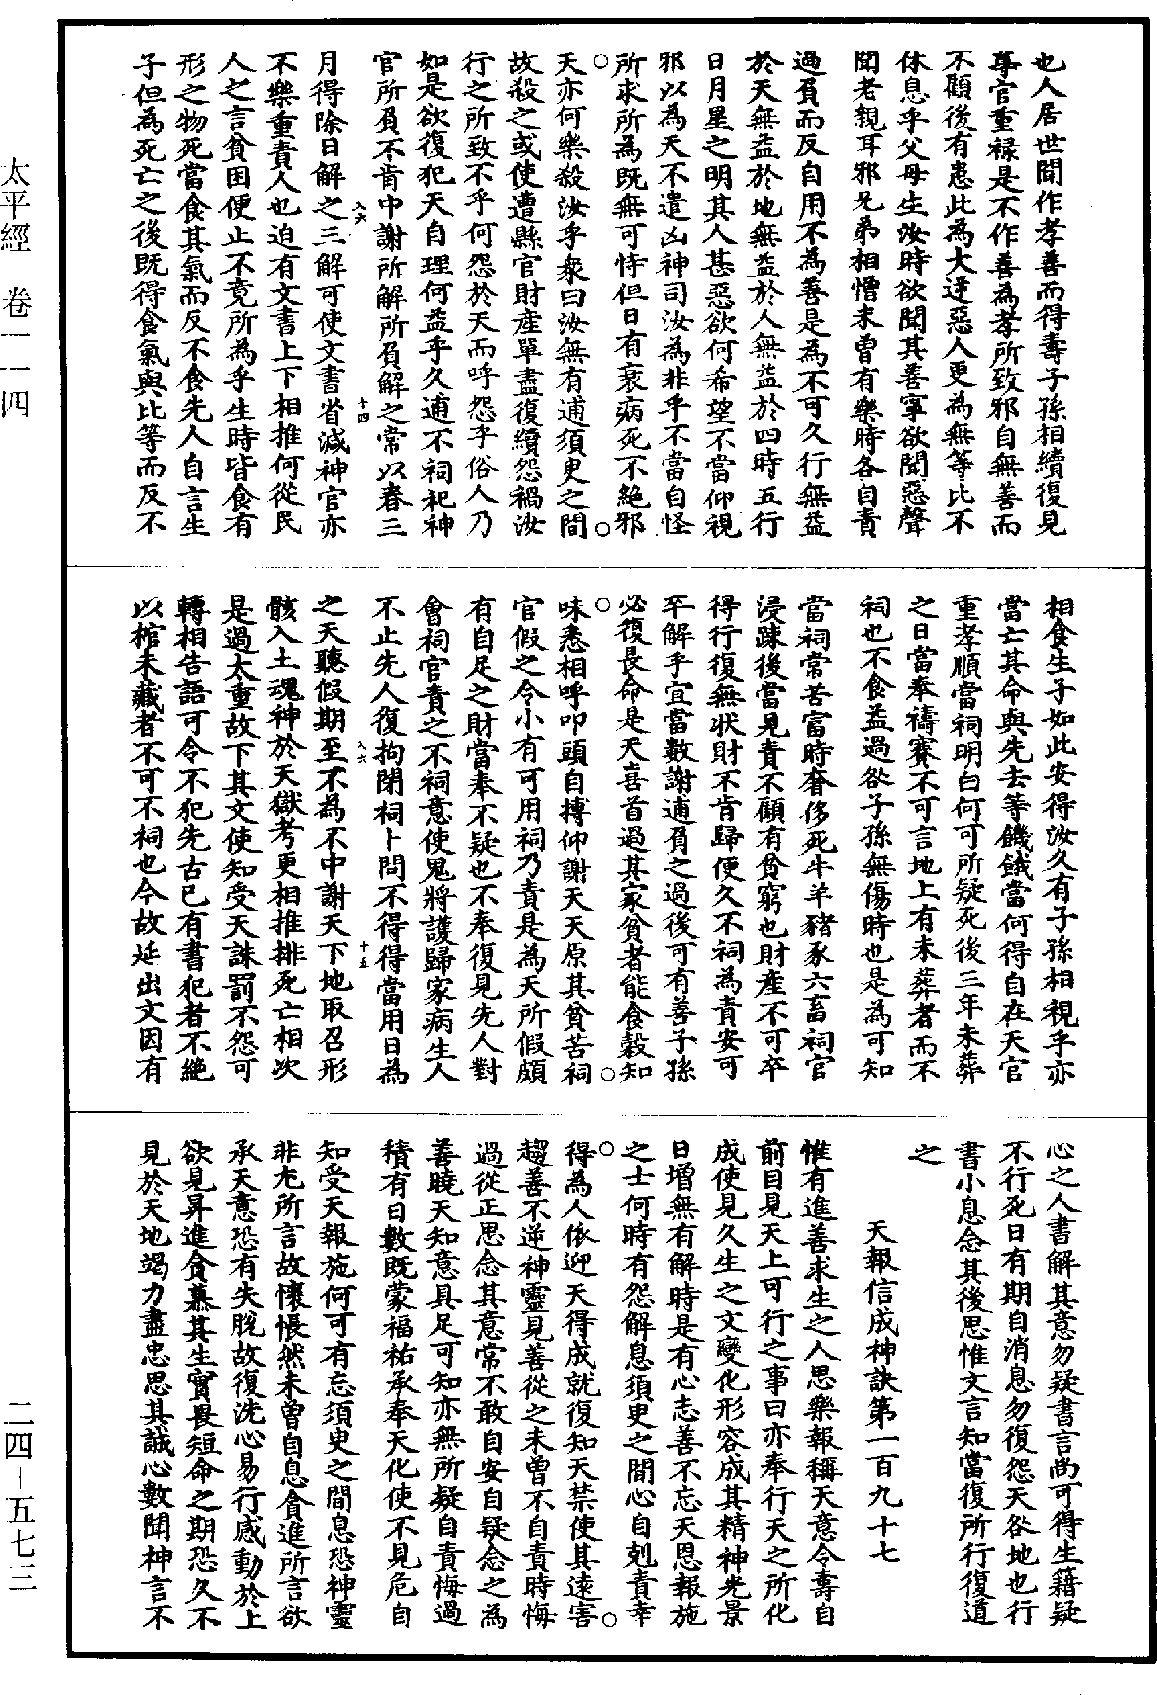 太平經 卷一一四
二四－五七三
也人居世間作孝善而得壽子孫相續復見
尊官重祿是不作善為孝所致邪自無善而
不顧後有患此為大逆惡人更為無等比不
休息乎父母生汝時欲聞其善寧欲聞惡聲
聞老親耳邪兄弟相憎未曾有樂時各自責
過負而反自用不為善是為不可久行無益
於天無益於地無益於人無益於四時五行
日月星之明其人甚惡欲何希望不當仰視
邪以為天不遣凶神司汝為非乎不當自怪
所求所為既無可恃但日有衰病死不絕邪
天亦何樂殺汝乎衆曰汝無有逋須臾之間
故殺之或使遭縣官財產單盡復續怨禍汝
行之所致不乎何怨於天而呼怨乎俗人乃
如是欲復犯天自理何益乎久逋不祠祀神
官所負不肯中謝所解所負解之常以春三
月得除日解之三解可使文書省減神官亦
不樂重責人也迫有文書上下相推何從民
人之言貧困便止不竟所為乎生時皆食有
形之物死當食其氣而反不食先人自言生
子但為死亡之後既得食氣與比等而反不
相食生子如此安得汝久有子孫相視乎亦
當亡其命與先去等饑餓當何得自在天官
重孝順當祠明白何可所疑死後三年未葬
之日當奉禱賽不可言地上有未葬者而不
祠也不食益過咎子孫無傷時也是為可知
當祠常苦富時奢侈死牛羊豬豕六畜祠官
浸踈後當見責不顧有貧窮也財產不可卒
得行復無狀財不肯歸便久不祠為責安可
卒解乎宜當數謝逋負之過後可有善子孫
必復長命是天喜首過其家貧者能食穀知
味悉相呼叩頭自搏仰謝天天原其貧苦祠
官假之令小有可用祠乃責是為天所假頗
有自足之財當奉不疑也不奉復見先人對
會祠官責之不祠意使鬼將護歸家病生人
不止先人復拘閉祠卜問不得得當用日為
之天聽假期至不為不中謝天下地取召形
骸入土魂神於天獄考更相推排死亡相次
是過太重故下其文使知受天誅罰不怨可
轉相告語可令不犯先古已有書犯者不絕
以棺未藏者不可不祠也今故延出文因有
心之人書解其意勿疑書言尚可得生籍疑
不行死日有期自消息勿復怨天咎地也行
書小息念其後思惟文言知當復所行復道
之
天報信成神訣第一百九十七
惟有進善求生之人思樂報稱天意令壽自
前目見天上可行之事曰亦奉行天之所化
成使見久生之文變化形容成其精神光景
日增無有解時是有心志善不忘天恩報施
之士何時有怨解息須臾之間心自剋責幸
得為人依迎天得成就復知天禁使其遠害
趨善不逆神靈見善從之未曾不自責時悔
過從正思念其意常不敢自安自疑念之為
善曉天知意具足可知亦無所疑自責悔過
積有日數既蒙福祐承奉天化使不見危自
知受天報施何可有忘須臾之間息恐神靈
非尤所言故懷悵然未曾自息貪進所言欲
承天意恐有失脫故復洗心易行感動於上
欲見昇進貪慕其生實畏短命之期恐久不
見於天地竭力盡忠思其誠心數聞神言不
八六
十四
八六
十五